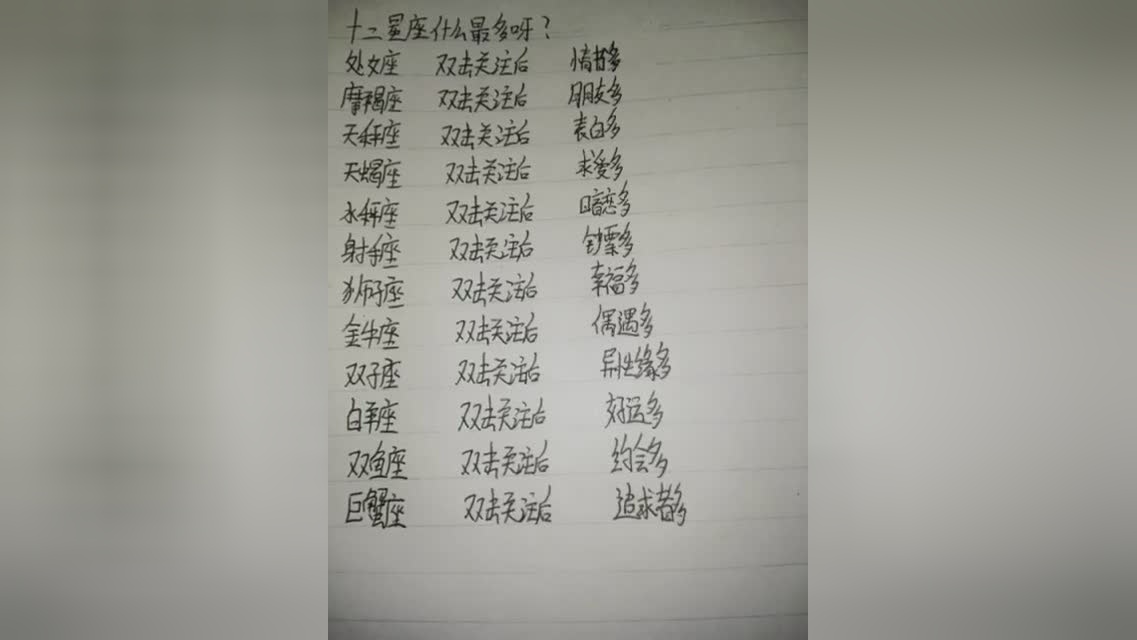 十二星座什么最多呀?
处女座 双击关注后 情书多
摩褐座 双击关注后 朋友多
天秤座 双击关注后 表白多
天蝎座 双击关注后 求爱多
水秤座 双击关注后 暗恋多
射手座 双击关注后 钞票多
狮子座 双击关注后 幸福多
金牛座 双击关注后 偶遇多
双子座 双击关注后 异性缘多
白羊座 双击关注后 好运多
双鱼座 双击关注后 约会多
巨蟹座 双击关注后 追求者多